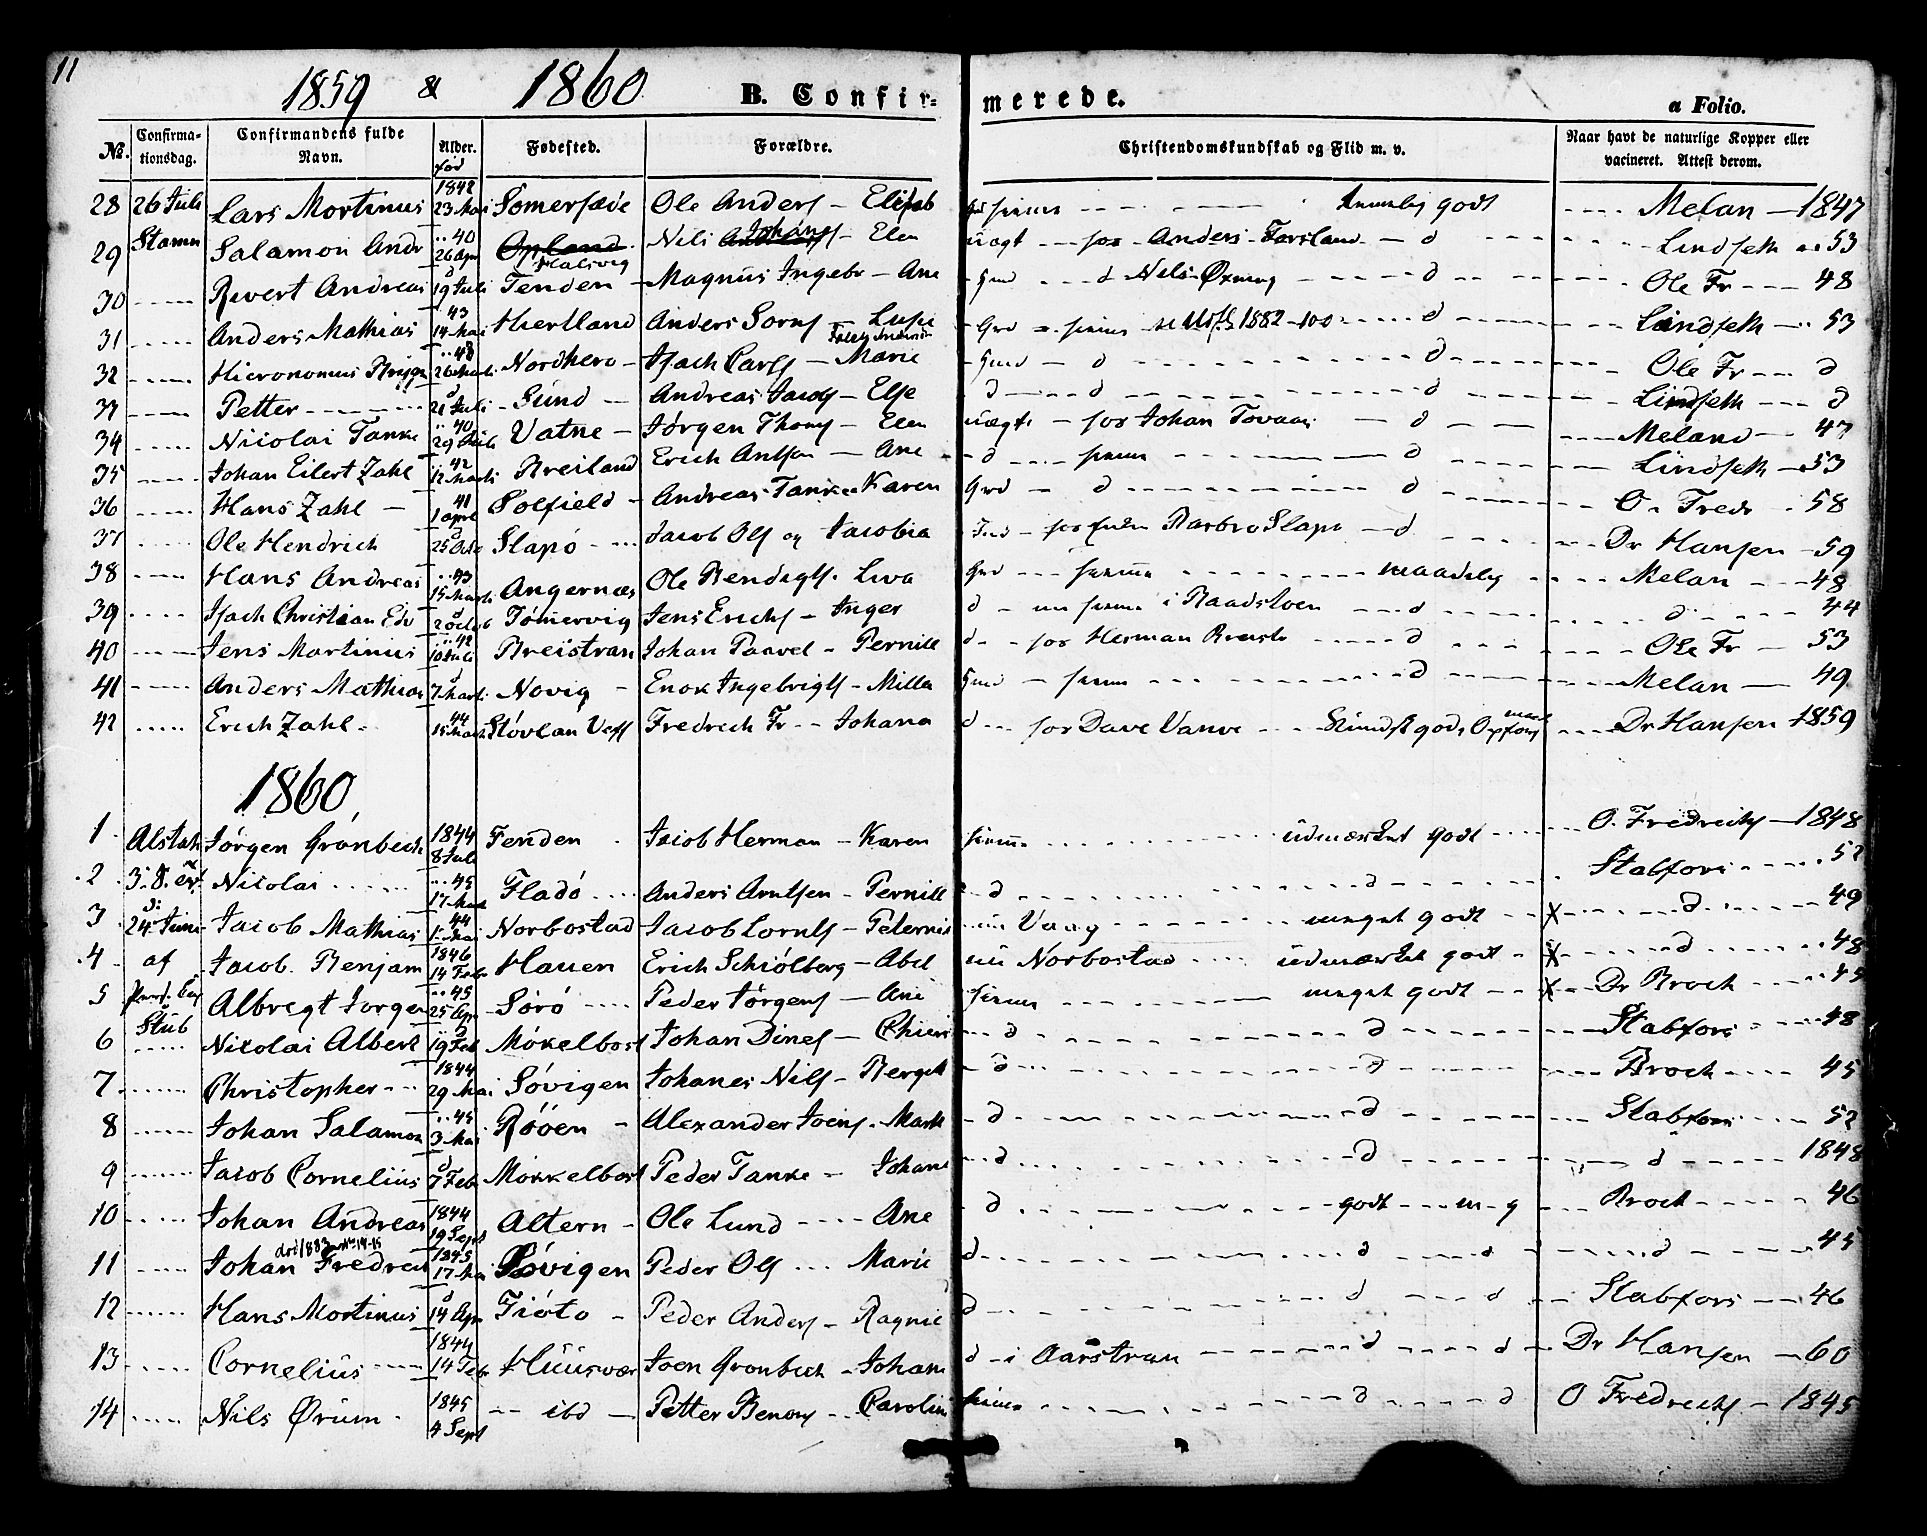 11
1859 & 1860 B. Confirmerede. a Folio.
No. Confirmationsdag. Confirmandens fulde Navn. Alder. Fødested. Forældre. Christendomskundskab og Flid m. v. Naar havt de naturlige Kopper eller vacineret. Attest derom.
fød
28 26 Juli Lars Mortinus 1842 23 Mai Somersæde Ole Anders - Elisab kundsb godt Melan - 1847
29 Stamn Salamon Andr 40 26 Apr Opland Halsvig Nils Johans - Elen vægt for Anders Forsland d Lindseth 53
30 Revert Andreas d 19 Juli Tenden Magnus Ingebr - Ane d Nels Øxning d Ole Fr 48
31 Anders Mathias 43 14 Mai Hiertland Anders Sorns - Lusie Grd 1882 d Lindseth 53
32 Hieronomus 48 Nordhero Isach Carls - Marie d d Ole Fr d
33 Petter d 21 Juli Sund Andreas Jacobs - Else d d d Lindseth d
34 Nicolai Tanke 40 29 Juli Vatne - Jørgen Thoms - Elen vægt for Johan Tovaas d Meland 47
35 Johan Eilert Zahl 42 12 Marti Breiland Erich Antson - Ane d d Lindseth 53
36 Hans Zahl 41 1 april Solfield Andreas Tanke Karen Grd d d O. Fredr 58
37 Ole Hendrich d 25 Slapø Jacob Ols og Jacobia for Barbro Slapø d Dr Hansen 59
38 Hans Andreas 43 15 Marti Angernæs Ole Bendigts Liva Grd maadelig Melan 48
39 Isach Christian Edv d 2 Tømervig Jens Erichs - Inger d i Raadsloen d d 44
40 Jens Martinus 42 10 Juli Breistran Johan Paavel - Pernill d for Herman d Ole Fr 53
41 Anders Mathias d 7 Marti Novig - Enok Ingebrigts - Milla d Melan 49
42 Erich Zahl 44 15 Støvlan Fredrich Fr - Johana d for Dave Vanve Dr Hansen 1859
1860
1 Alstah Jørgen Grønbech 1844 8 Juli Tenden Jacob Herman - Karen hiem udmærket godt O. Fredrichs - 1848
2 3. S. Nicolai 45 17 Mai Fladø Anders Arntsen - Pernill d d Stabfors 52
3 d: 24 Juni Jacob Mathias 44 1 Mai Norbostad Jacob Lornts - Peternil Vaag meget godt X d 49
4 af Jacob Benjam 1846 14 Feb Hauen Erich Schiølberg - Abel Norbostad udmærket godt X d 48
5 Albregt Jørgen 45 25 Apr Sørø Peder Jørgens - Ane hiem meget godt X Dr Broch 45
Stub
6 Nicolai Albert 19 Feb Møkelbost Johan Dines d d Stabfors 48
7 Christopher 1844 29 Mai Søvigen Johanes Nils - Bergit d d Broch 45
8 Johan Salamon 45 3 Mai Røøen Alexander Joens - Marth d d Stabfors 52
9 Jacob Cornelius d 7 Feb Mökkelbost Peder Tanke - Johane d d d 1848
10 Johan Andreas 1844 19 Sept Altern Ole Lund Ane d godt m g Broch 46
død 1883 No 14-15
11 Johan Fredrich 1845 17 Mai Søvigen Peder Ols Marie d d d d 45
12 Hans Mortinus d 14 Apr Tiøto Peder Anders - Ragnil d d d Stabfors 46
13 Cornelius 1844 14 Feb Huusvær Joen Grønbech - Johan d i Aarstran d d Dr Hansen - 60
14 Nils Ørum 1845 4 Sept ibd Petter Benons Carolin hiem d d O Fredrichs - 1845